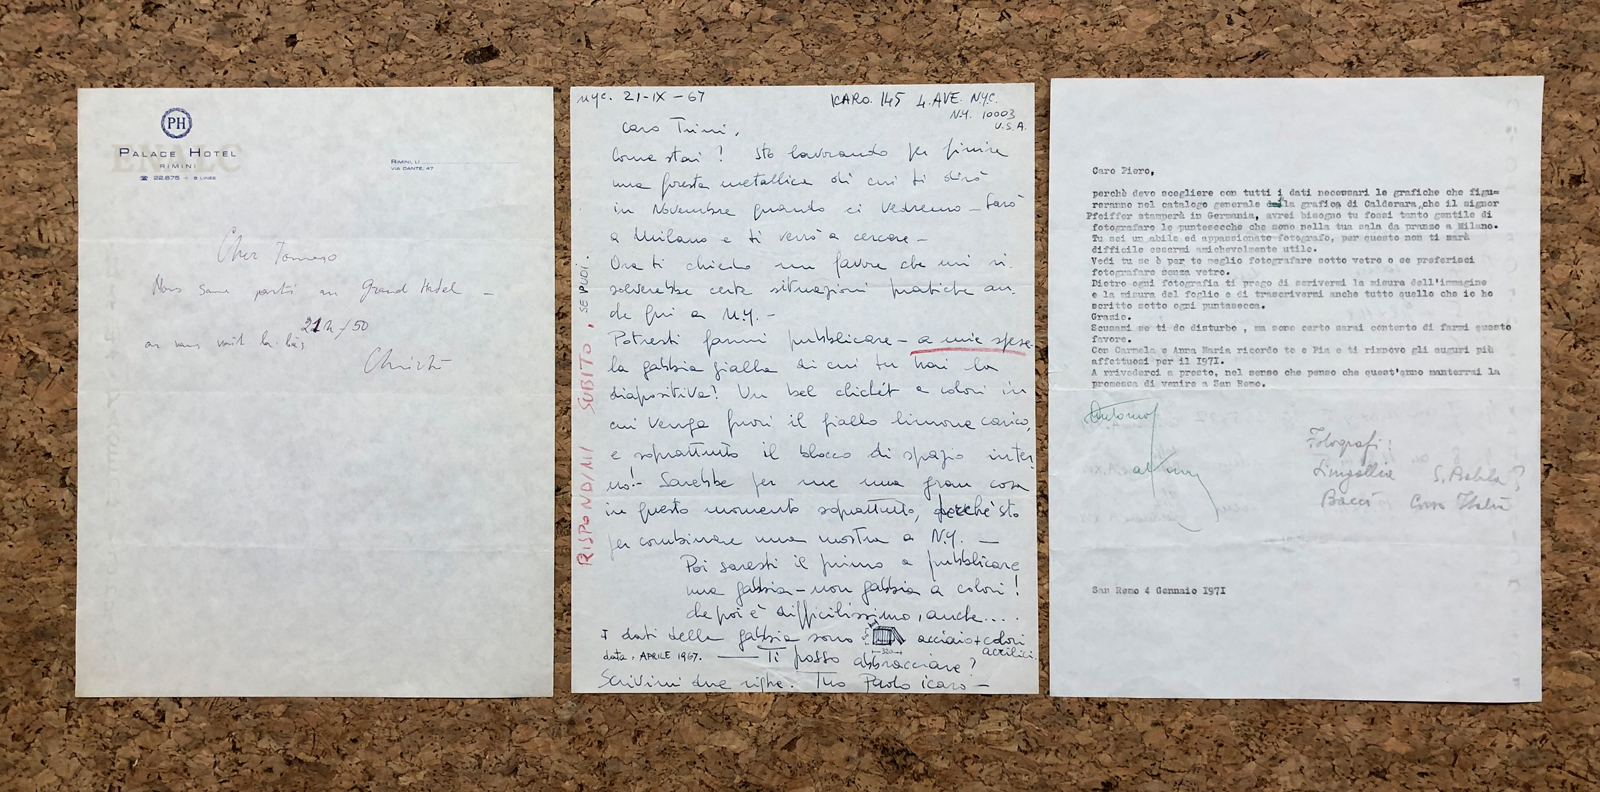 PH
PALACE HOTEL
RIMINI
☎ 22.675 - 3 LINEE
RIMINI, LI
VIA DANTE, 47
Cher Tomaso
Nous sommes partis au Grand Hotel —
on vous voit là bas, 21h/50
Christo
nyc. 21-IX-67
ICARO. 145 4. AVE. NYC.
N.Y. 10003
U.S.A.
Caro Trini,
Come stai? Sto lavorando per finire
una foresta metallica di cui ti dirò
in Novembre quando ci vedremo — Sarò
a Milano e ti verrò a cercare —
Ora ti chiedo un favore che mi ri-
solverebbe certe situazioni pratiche an-
che qui a N.Y. —
Potresti farmi pubblicare — a mie spese-
la gabbia gialla di cui tu hai la
diapositiva? Un bel clichét a colori in
cui venga fuori il giallo limone carico,
e soprattutto il blocco di spazio inter-
no!- Sarebbe per me una gran cosa
in questo momento soprattutto, perchè sto
per combinare una mostra a N.Y. —
Poi saresti il primo a pubblicare
una gabbia-non gabbia a colori!
che poi è difficilissimo, anche....
I dati della gabbia sono acciaio+colori
acrilici,
data, APRILE 1967. — Ti posso abbracciare?
Scrivimi due righe. Tuo Paolo icaro —
RISPONDIMI SUBITO, SE PUOI.
Caro Piero,
perchè devo scegliere con tutti i dati necessari le grafiche che figu=
reranno nel catalogo generale della grafica di Calderara,che il signor
Pfeiffer stamperà in Germania, avrei bisogno tu fossi tanto gentile di
fotografare le puntesecche che sono nella tua sala da pranzo a Milano.
Tu sei un abile ed appassionato fotografo, per questo non ti sarà
difficile essermi amichevolmente utile.
Vedi tu se è per te meglio fotografare sotto vetro o se preferisci
fotografare senza vetro.
Dietro ogni fotografia ti prego di scrivermi la misura dell'immagine
e la misura del foglio e di trascrivermi anche tutto quello che io ho
scritto sotto ogni puntasecca.
Grazie.
Scusami se ti do disturbo , ma sono certo sarai contento di farmi questo
favore.
Con Carmela e Anna Maria ricordo te e Pia e ti rinnovo gli auguri più
affettuosi per il I97I.
A rivederci a presto, nel senso che penso che quest'anno manterrai la
promessa di venire a San Remo.
Antonio
Fotografi:
S. Babila?
Bacci Corso Italia
San Remo 4 Gennaio I97I